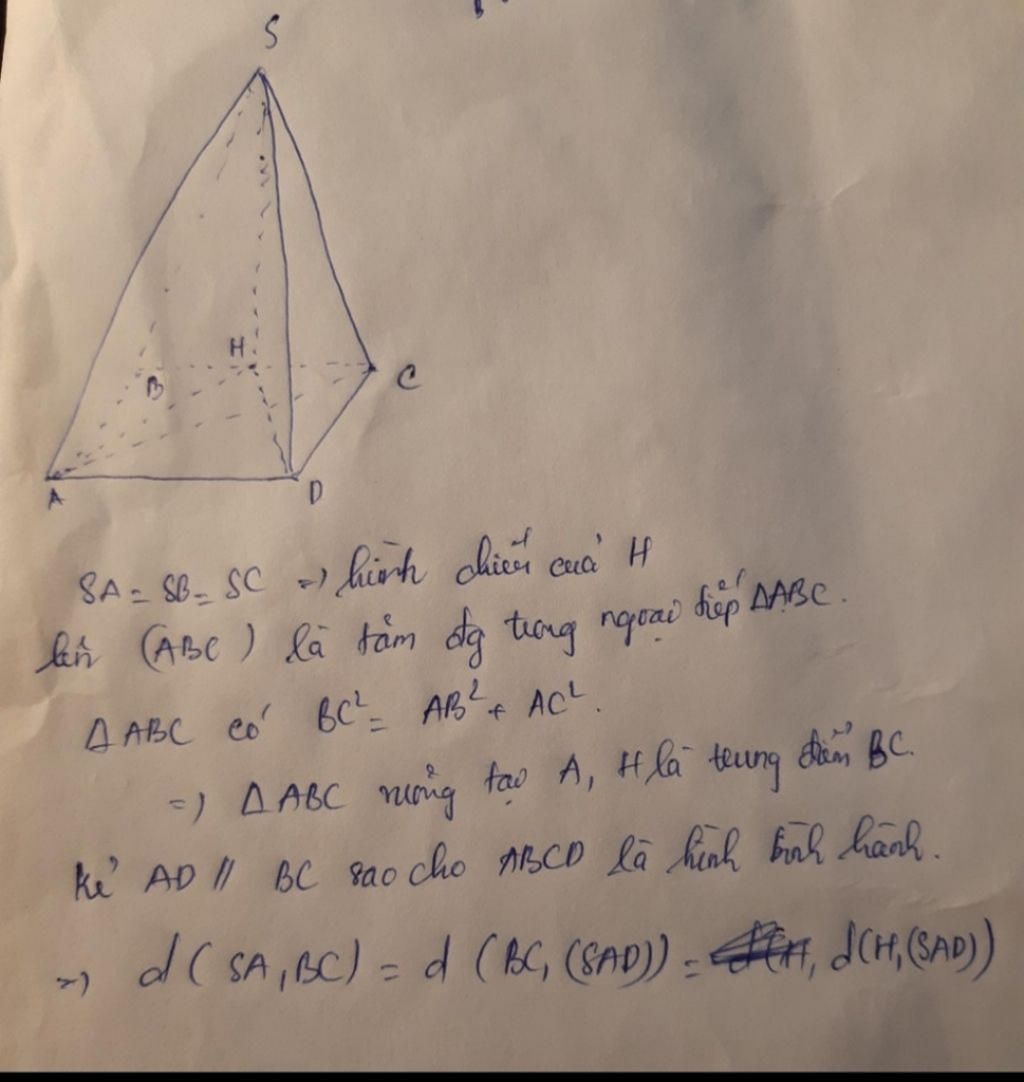 S
H
B
C
A
D
SA = SB = SC => hình chiếu của H
lên (ABC) là tâm đg trong ngoại tiếp ΔABC.
ΔABC có BC² = AB² + AC².
=> ΔABC vuông tạo A, H là trung điểm BC.
Kẻ AD // BC sao cho ABCD là hình bình hành.
=> d(SA, BC) = d(BC, (SAD)) = d(H, (SAD))